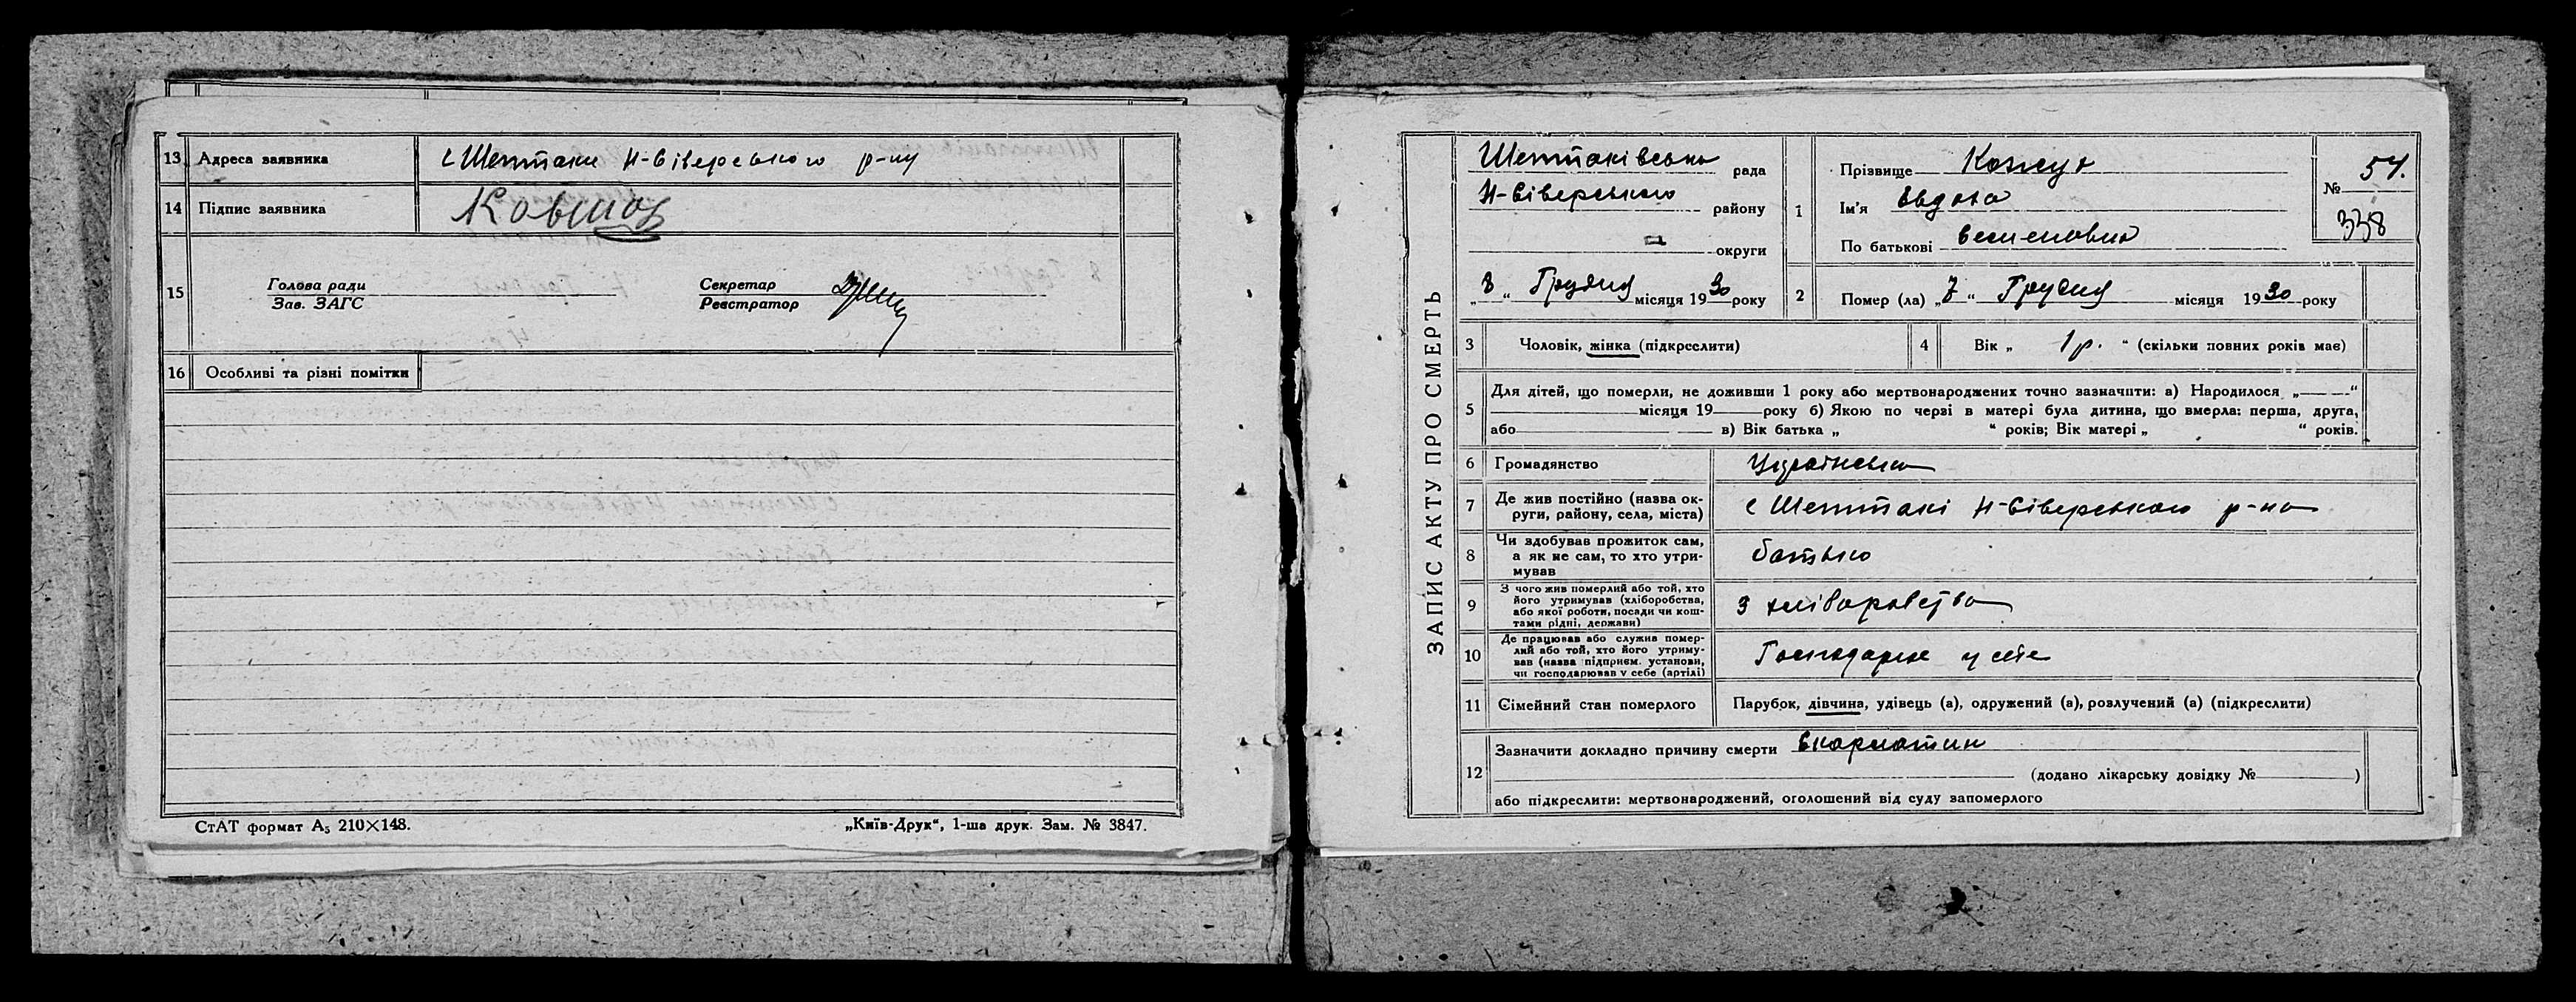 13 Адреса заявника с Шептаки Н-Сіверського р-ну
14 Підпис заявника
15 Голова ради
Зав. ЗАГС
Секретар
Реєстратор
16 Особливі та різні помітки
СтАТ формат А₅ 210×148.
„Київ-Друк“, 1-ша друк. Зам. № 3847.
ЗАПИС АКТУ ПРО СМЕРТЬ
Шептаківська рада
Н-Сіверського району
— округи
„8“ Грудня місяця 1930 року
1 Прізвище Кожух
Ім'я Евдока
По батькові Семеновна
№ 54.
338
2 Помер (ла) „7“ Грудня місяця 1930 року
3 Чоловік, жінка (підкреслити)
4 Вік „ 1 р. “ (скільки повних років має)
5 Для дітей, що померли, не доживши 1 року або мертвонароджених точно зазначити: а) Народилося „ “
місяця 19 року б) Якою по черзі в матері була дитина, що вмерла: перша, друга,
або в) Вік батька „ “ років; Вік матері „ “ років.
6 Громадянство Українська
7 Де жив постійно (назва ок-
руги, району, села, міста) с Шептакі Н-Сіверського р-на
8 Чи здобував прожиток сам,
а як не сам, то хто утри-
мував батько
9 З чого жив померлий або той, хто
його утримував (хліборобства,
або якої роботи, посади чи кош-
тами рідні, держави) З хліборобства
10 Де працював або служив помер-
лий або той, хто його утриму-
вав (назва підприєм. установи,
чи господарював у себе (артілі) у себе
11 Сімейний стан померлого Парубок, дівчина, удівець (а), одружений (а), розлучений (а) (підкреслити)
12 Зазначити докладно причину смерти Скарлатин
(додано лікарську довідку № )
або підкреслити: мертвонароджений, оголошений від суду запомерлого